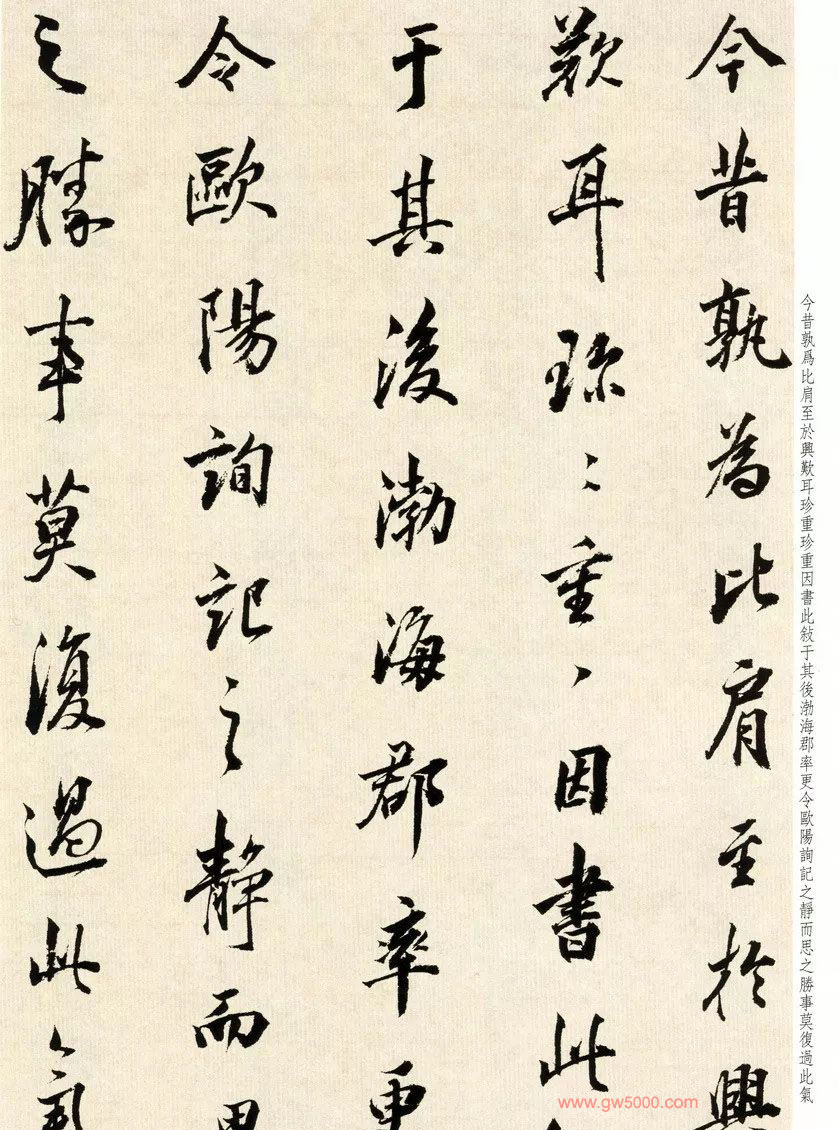 今昔孰爲比肩至於興歎耳珍重珍重因書此敍于其後渤海郡率更令歐陽詢記之靜而思之勝事莫復過此氣
今昔孰為比肩至於興
歎耳珍〻重〻因書此
于其後渤海郡率更
令歐陽詢記之靜而思
之勝事莫復過此氣
www.gw5000.com